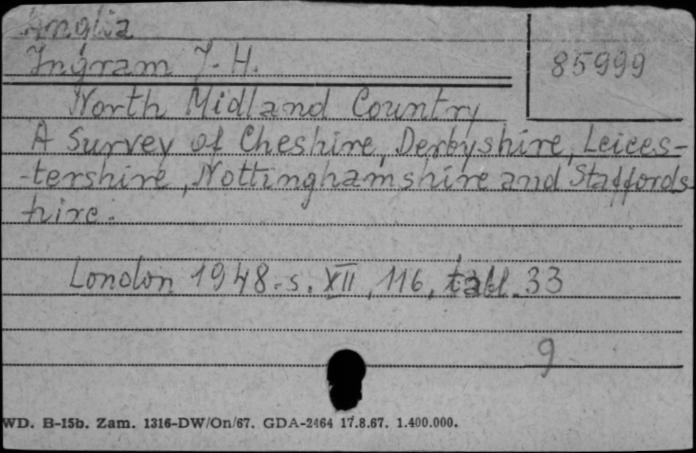 Anglia
Ingram J. H.
85999
North Midland Country
A Survey of Cheshire, Derbyshire, Leices-
-tershire, Nottinghamshire and Staffords
hire.
London 1948. s. XII, 116, tabl. 33
9
WD. B-15b. Zam. 1316-DW/On/67. GDA-2464 17.8.67. 1.400.000.